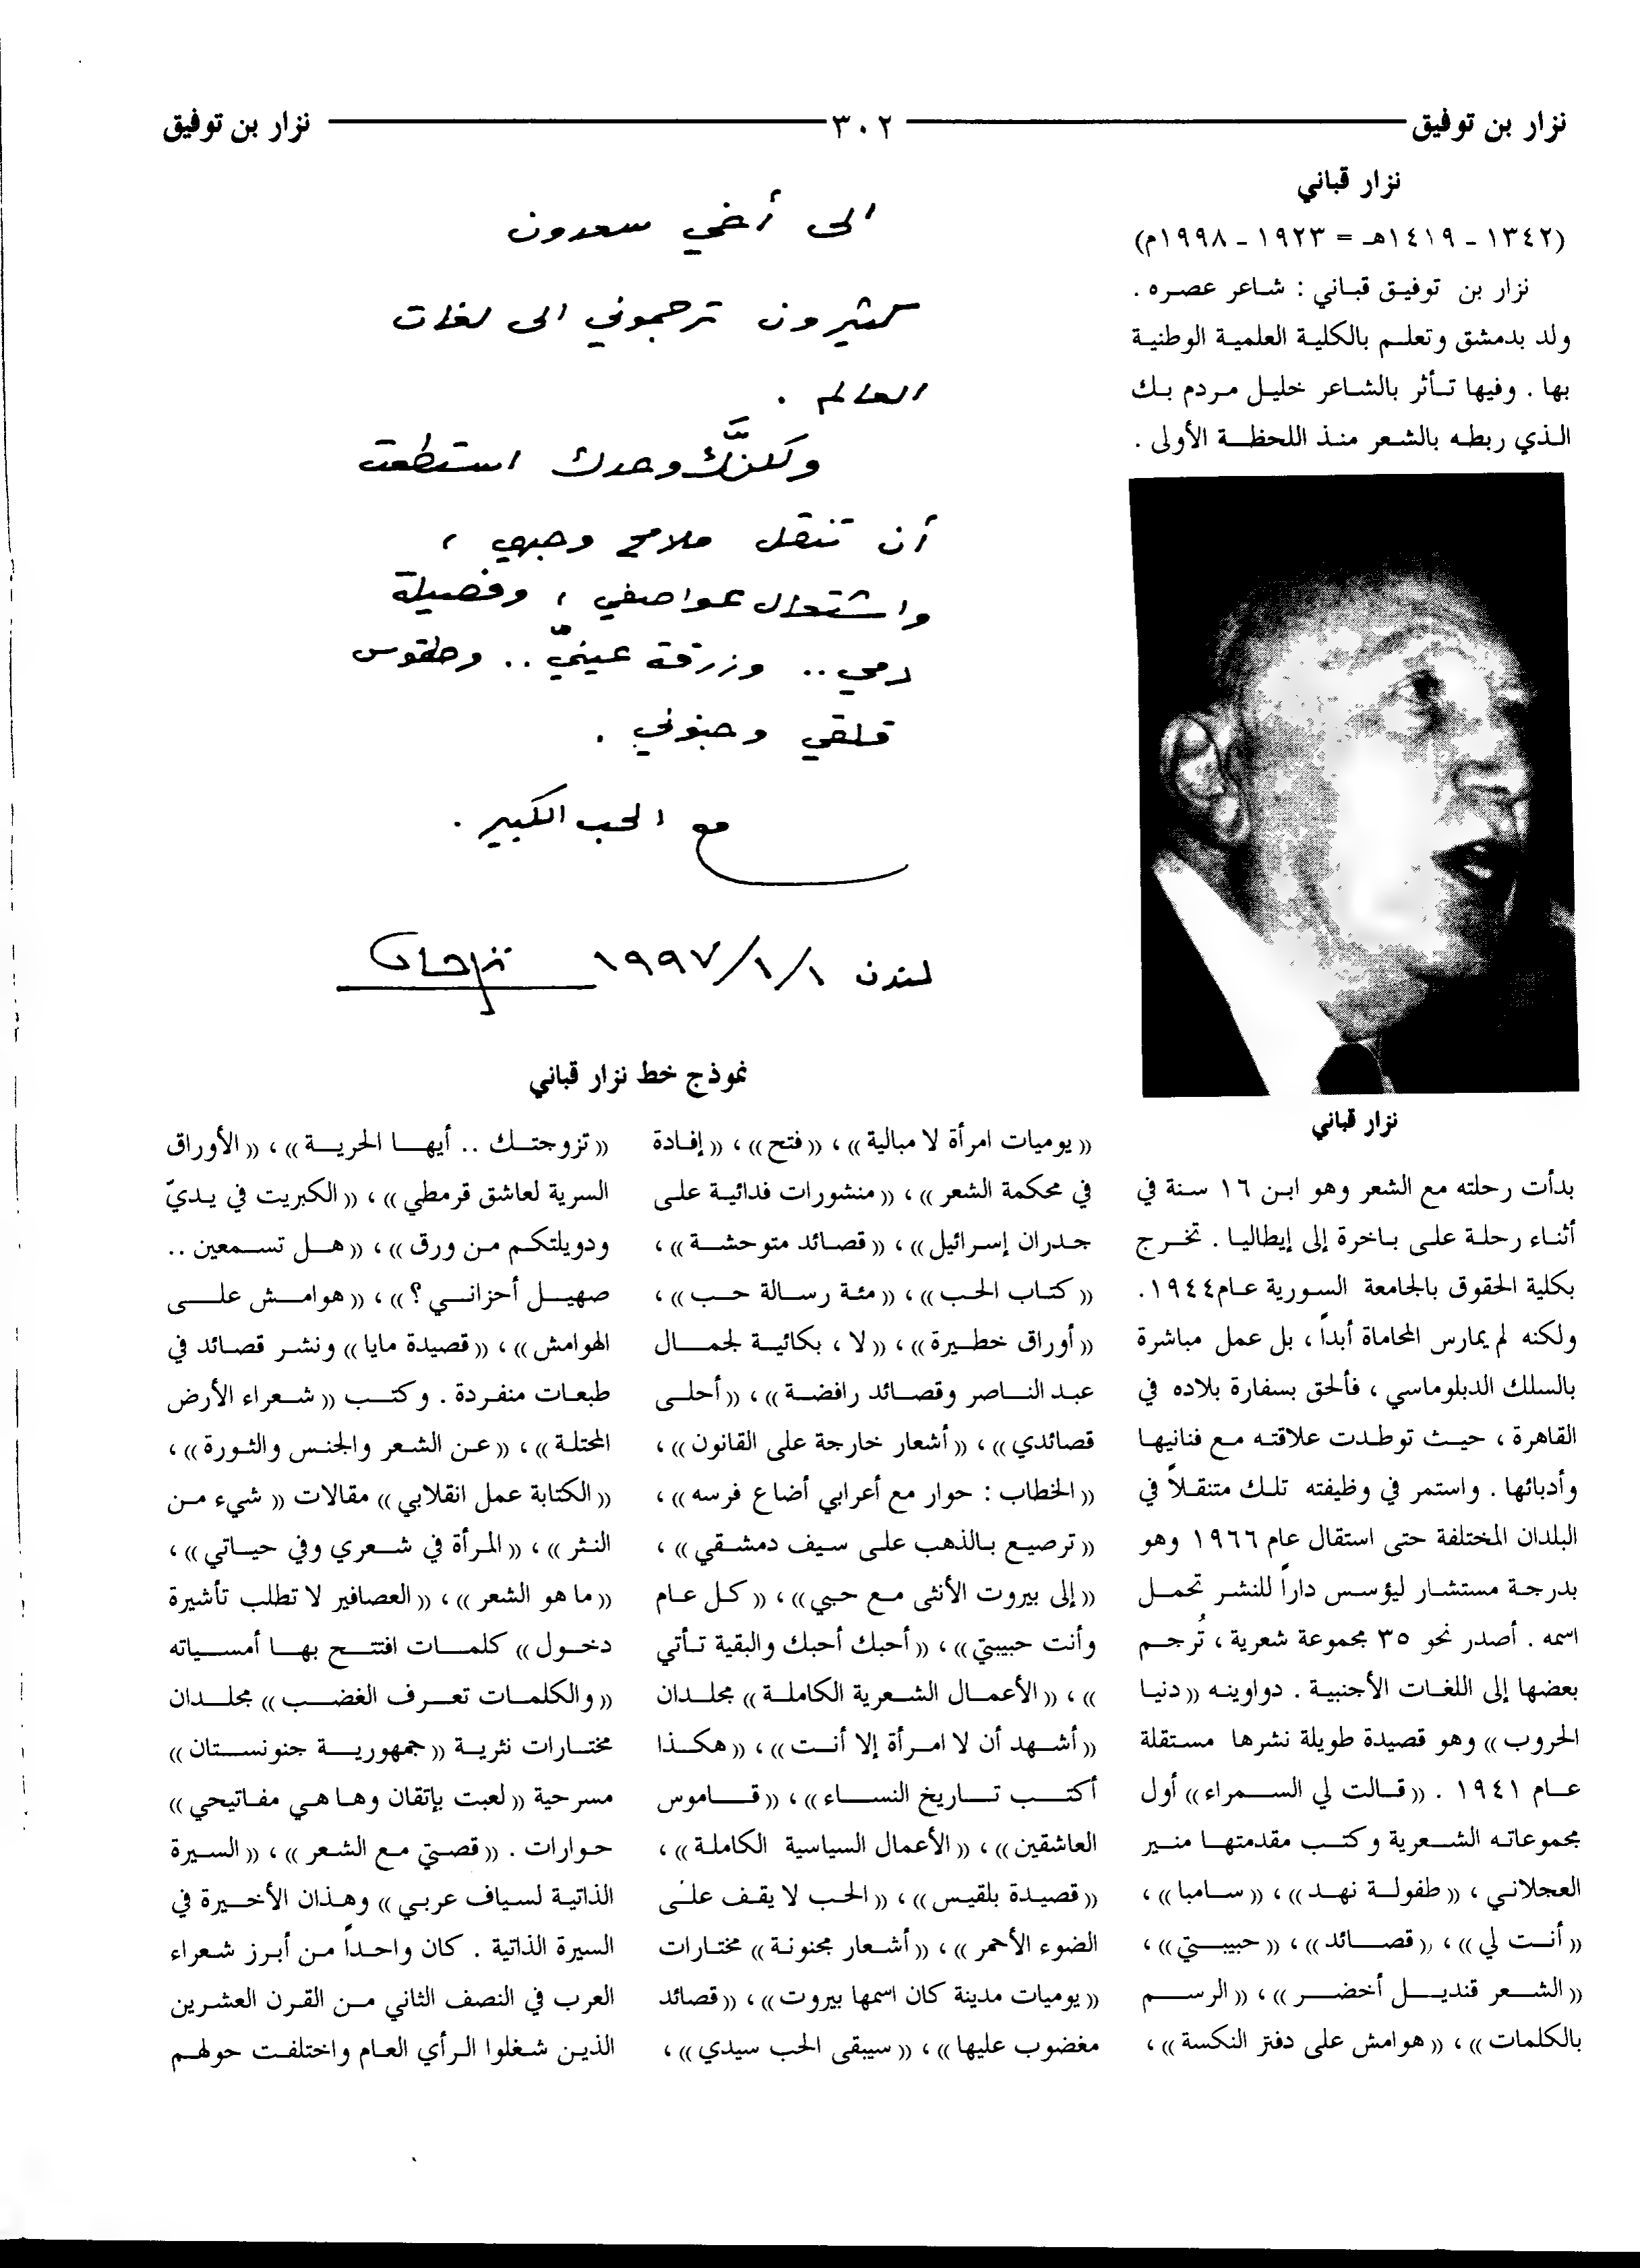 نزار بن توفيق ٣٠٢ نزار بن توفيق
نزار قباني
(١٣٤٢ - ١٤١٩هـ = ١٩٢٣ - ١٩٩٨م)
نزار بن توفيق قباني : شاعر عصره .
ولد بدمشق وتعلم بالكلية العلمية الوطنية
بها . وفيها تأثر بالشاعر خليل مردم بك
الذي ربطه بالشعر منذ اللحظة الأولى .
نزار قباني
بدأت رحلته مع الشعر وهو ابن ١٦ سنة في
أثناء رحلة على باخرة إلى إيطاليا . تخرج
بكلية الحقوق بالجامعة السورية عام١٩٤٤.
ولكنه لم يمارس المحاماة أبداً ، بل عمل مباشرة
بالسلك الدبلوماسي ، فألحق بسفارة بلاده في
القاهرة ، حيث توطدت علاقته مع فنانيها
وأدبائها . واستمر في وظيفته تلك متنقلاً في
البلدان المختلفة حتى استقال عام ١٩٦٦ وهو
بدرجة مستشار ليؤسس داراً للنشر تحمل
اسمه . أصدر نحو ٣٥ مجموعة شعرية ، تُرجم
بعضها إلى اللغات الأجنبية . دواوينه (( دنيا
الحروب )) وهو قصيدة طويلة نشرها مستقلة
عام ١٩٤١ . (( قالت لي السمراء )) أول
مجموعاته الشعرية وكتب مقدمتها منير
العجلاني ، (( طفولة نهد )) ، (( سامبا )) ،
(( أنت لي )) ، (( قصائد )) ، (( حبيبتي )) ،
(( الشعر قنديل أخضر )) ، (( الرسم
بالكلمات )) ، (( هوامش على دفتر النكسة )) ،
الى أخي سعدون
كثيرون ترجموني الى لغات
العالم .
ولكنَّكَ وحدك استطعت
أن تنقل ملامح وجهي ،
واشتعال عواصفي ، وفصيلة
دمي .. وزرقة عينيّ .. وطقوس
قلقي وجنوني .
مع الحب الكبير .
لندن ١/١/١٩٩٧ نزار قباني
نموذج خط نزار قباني
(( يوميات امرأة لا مبالية )) ، (( فتح )) ، (( إفادة
في محكمة الشعر )) ، (( منشورات فدائية على
جدران إسرائيل )) ، (( قصائد متوحشة )) ،
(( كتاب الحب )) ، (( مئة رسالة حب )) ،
(( أوراق خطيرة )) ، (( لا ، بكائية لجمال
عبد الناصر وقصائد رافضة )) ، (( أحلى
قصائدي )) ، (( أشعار خارجة على القانون )) ،
(( الخطاب : حوار مع أعرابي أضاع فرسه )) ،
(( ترصيع بالذهب على سيف دمشقي )) ،
(( إلى بيروت الأنثى مع حبي )) ، (( كل عام
وأنت حبيبتي )) ، (( أحبك أحبك والبقية تأتي
)) ، (( الأعمال الشعرية الكاملة )) مجلدان
(( أشهد أن لا امرأة إلا أنت )) ، (( هكذا
أكتب تاريخ النساء )) ، (( قاموس
العاشقين )) ، (( الأعمال السياسية الكاملة )) ،
(( قصيدة بلقيس )) ، (( الحب لا يقف على
الضوء الأحمر )) ، (( أشعار مجنونة )) مختارات
(( يوميات مدينة كان اسمها بيروت )) ، (( قصائد
مغضوب عليها )) ، (( سيبقى الحب سيدي )) ،
(( تزوجتك .. أيها الحرية )) ، (( الأوراق
السرية لعاشق قرمطي )) ، (( الكبريت في يديّ
ودويلتكم من ورق )) ، (( هل تسمعين ..
صهيل أحزاني ؟ )) ، (( هوامش على
الهوامش )) ، (( قصيدة مايا )) ونشر قصائد في
طبعات منفردة . وكتب (( شعراء الأرض
المحتلة )) ، (( عن الشعر والجنس والثورة )) ،
(( الكتابة عمل انقلابي )) مقالات (( شيء من
النثر )) ، (( المرأة في شعري وفي حياتي )) ،
(( ما هو الشعر )) ، (( العصافير لا تطلب تأشيرة
دخول )) كلمات افتتح بها أمسياته
(( والكلمات تعرف الغضب )) مجلدان
مختارات نثرية (( جمهورية جنونستان ))
مسرحية (( لعبت بإتقان وها هي مفاتيحي ))
حوارات . (( قصتي مع الشعر )) ، (( السيرة
الذاتية لسياف عربي )) وهذان الأخيرة في
السيرة الذاتية . كان واحداً من أبرز شعراء
العرب في النصف الثاني من القرن العشرين
الذين شغلوا الرأي العام واختلفت حولهم